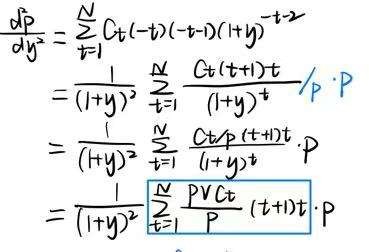 d²P/dy² = Σ_{t=1}^{N} Ct(-t)(-t-1)(1+y)^{-t-2}
= 1/(1+y)² Σ_{t=1}^{N} Ct(t+1)t/(1+y)^t /P · P
= 1/(1+y)² Σ_{t=1}^{N} Ct/P (t+1)t/(1+y)^t · P
= 1/(1+y)² Σ_{t=1}^{N} PVCt/P (t+1)t · P